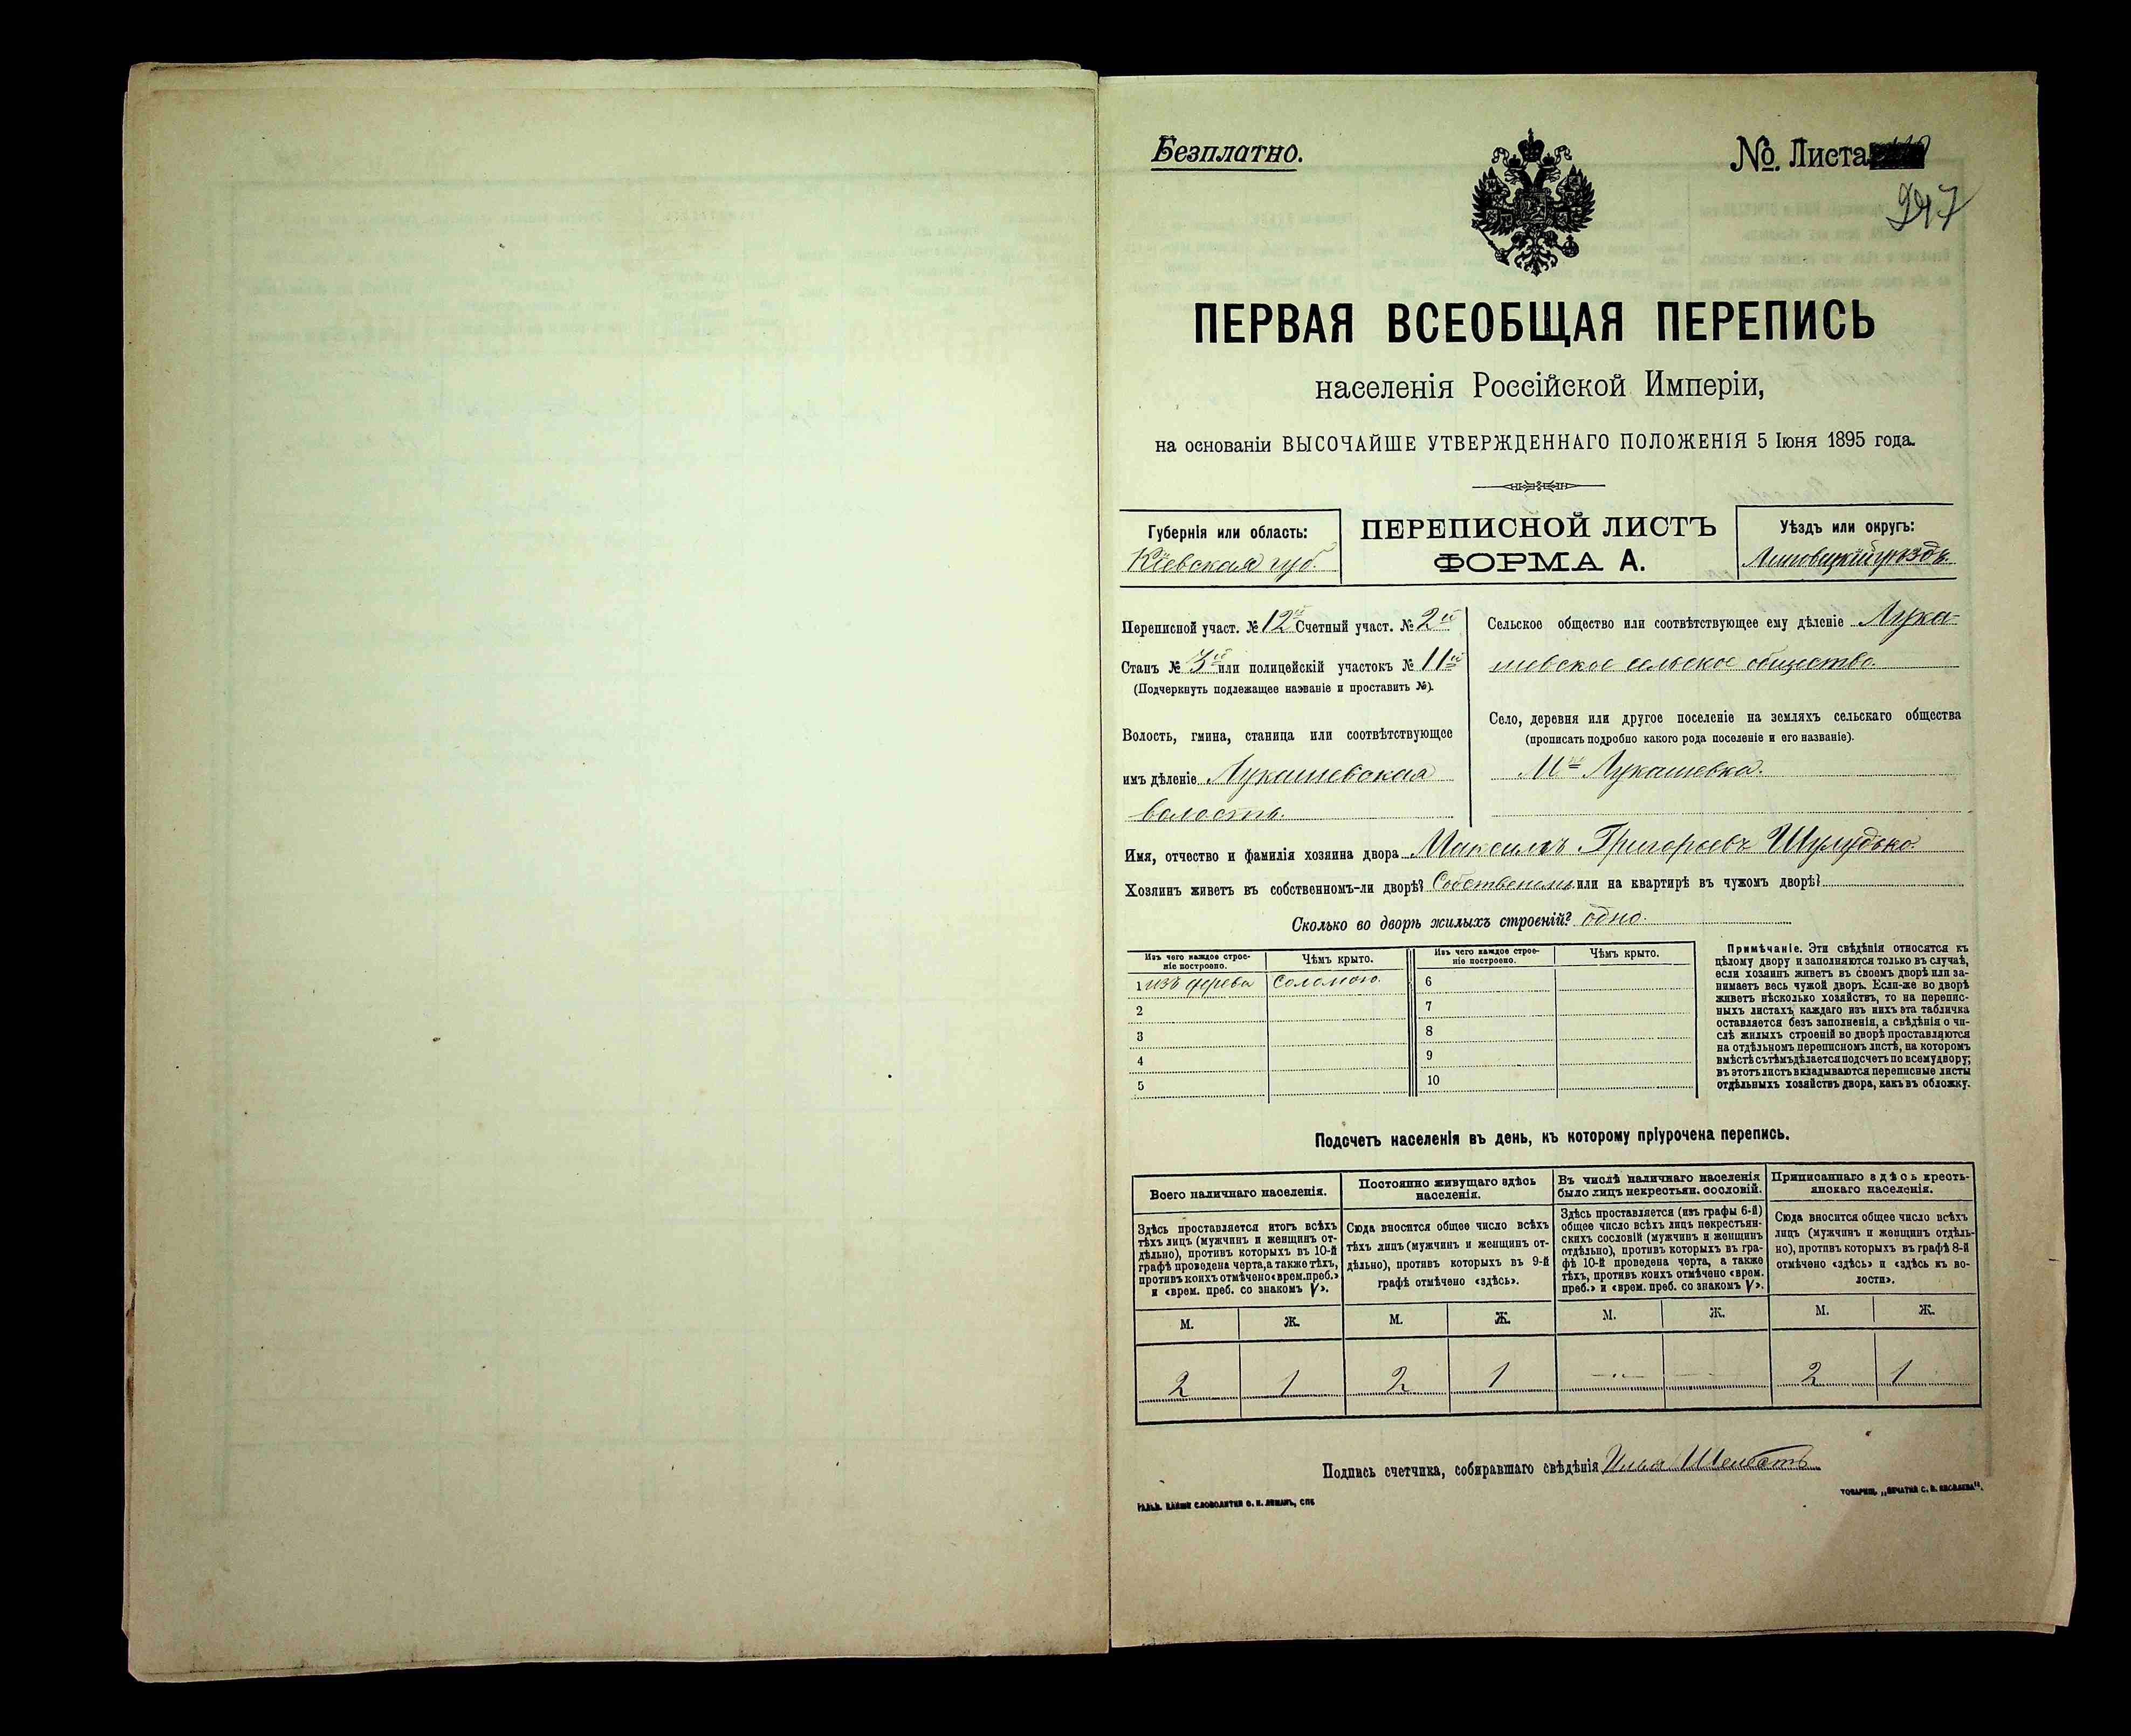 Безплатно.
№ Листа
247
ПЕРВАЯ ВСЕОБЩАЯ ПЕРЕПИСЬ
населенія Россійской Имперіи,
на основаніи ВЫСОЧАЙШЕ УТВЕРЖДЕННАГО ПОЛОЖЕНІЯ 5 Іюня 1895 года.
Губернія или область:
Кіевская губ.
ПЕРЕПИСНОЙ ЛИСТЪ
ФОРМА А.
Уѣздъ или округъ:
Липовецкій уѣздъ
Переписной участ. № 12й Счетный участ. № 2й
Станъ № 3й или полицейскій участокъ № 11й
(Подчеркнуть подлежащее названіе и проставить №).
Волость, гмина, станица или соотвѣтствующее
имъ дѣленіе Лукашевская
волость.
Сельское общество или соотвѣтствующее ему дѣленіе Лука-
шевское сельское общество.
Село, деревня или другое поселеніе на земляхъ сельскаго общества
(прописать подробно какого рода поселеніе и его названіе).
Мко Лукашевка.
Имя, отчество и фамилія хозяина двора Максимъ Григорьевъ Шулудько
Хозяинъ живетъ въ собственномъ-ли дворѣ? Собственомъ или на квартирѣ въ чужомъ дворѣ?
Сколько во дворѣ жилыхъ строеній? одно.
Изъ чего каждое строе-
ніе построено.
Чѣмъ крыто.
Изъ чего каждое строе-
ніе построено.
Чѣмъ крыто.
1 изъ дерева Соломою. 6
2 7
3 8
4 9
5 10
Примѣчаніе. Эти свѣдѣнія относятся къ
цѣлому двору и заполняются только въ случаѣ,
если хозяинъ живетъ въ своемъ дворѣ или за-
нимаетъ весь чужой дворъ. Если-же во дворѣ
живетъ нѣсколько хозяйствъ, то на перепис-
ныхъ листахъ каждаго изъ нихъ эта табличка
оставляется безъ заполненія, а свѣдѣнія о чи-
слѣ жилыхъ строеній во дворѣ проставляются
на отдѣльномъ переписномъ листѣ, на которомъ
вмѣстѣ съ тѣмъ дѣлается подсчетъ по всему двору;
въ этотъ листъ вкладываются переписные листы
отдѣльныхъ хозяйствъ двора, какъ въ обложку.
Подсчетъ населенія въ день, къ которому пріурочена перепись.
Всего наличнаго населенія.
Здѣсь проставляется итогъ всѣхъ
тѣхъ лицъ (мужчинъ и женщинъ от-
дѣльно), противъ которыхъ въ 10-й
графѣ проведена черта, а также тѣхъ,
противъ коихъ отмѣчено «врем. преб.»
и «врем. преб. со знакомъ V».
Постоянно живущаго здѣсь
населенія.
Сюда вносится общее число всѣхъ
тѣхъ лицъ (мужчинъ и женщинъ от-
дѣльно), противъ которыхъ въ 9-й
графѣ отмѣчено «здѣсь».
Въ числѣ наличнаго населенія
было лицъ некрестьян. сословій.
Здѣсь проставляется (изъ графы 6-й)
общее число всѣхъ лицъ некрестьян-
скихъ сословій (мужчинъ и женщинъ
отдѣльно), противъ которыхъ въ гра-
фѣ 10-й проведена черта, а также
тѣхъ, противъ коихъ отмѣчено «врем.
преб.» и «врем. преб. со знакомъ V».
Приписаннаго здѣсь кресть-
янскаго населенія.
Сюда вносится общее число всѣхъ
лицъ (мужчинъ и женщинъ отдѣль-
но), противъ которыхъ въ графѣ 8-й
отмѣчено «здѣсь» и «здѣсь къ во-
лости».
М. Ж. М. Ж. М. Ж. М. Ж.
2 1 2 1 — — 2 1
Подпись счетчика, собиравшаго свѣдѣнія Илья
ТОВАРИЩ. „ПЕЧАТНЯ С. П. ЯКОВЛЕВА".